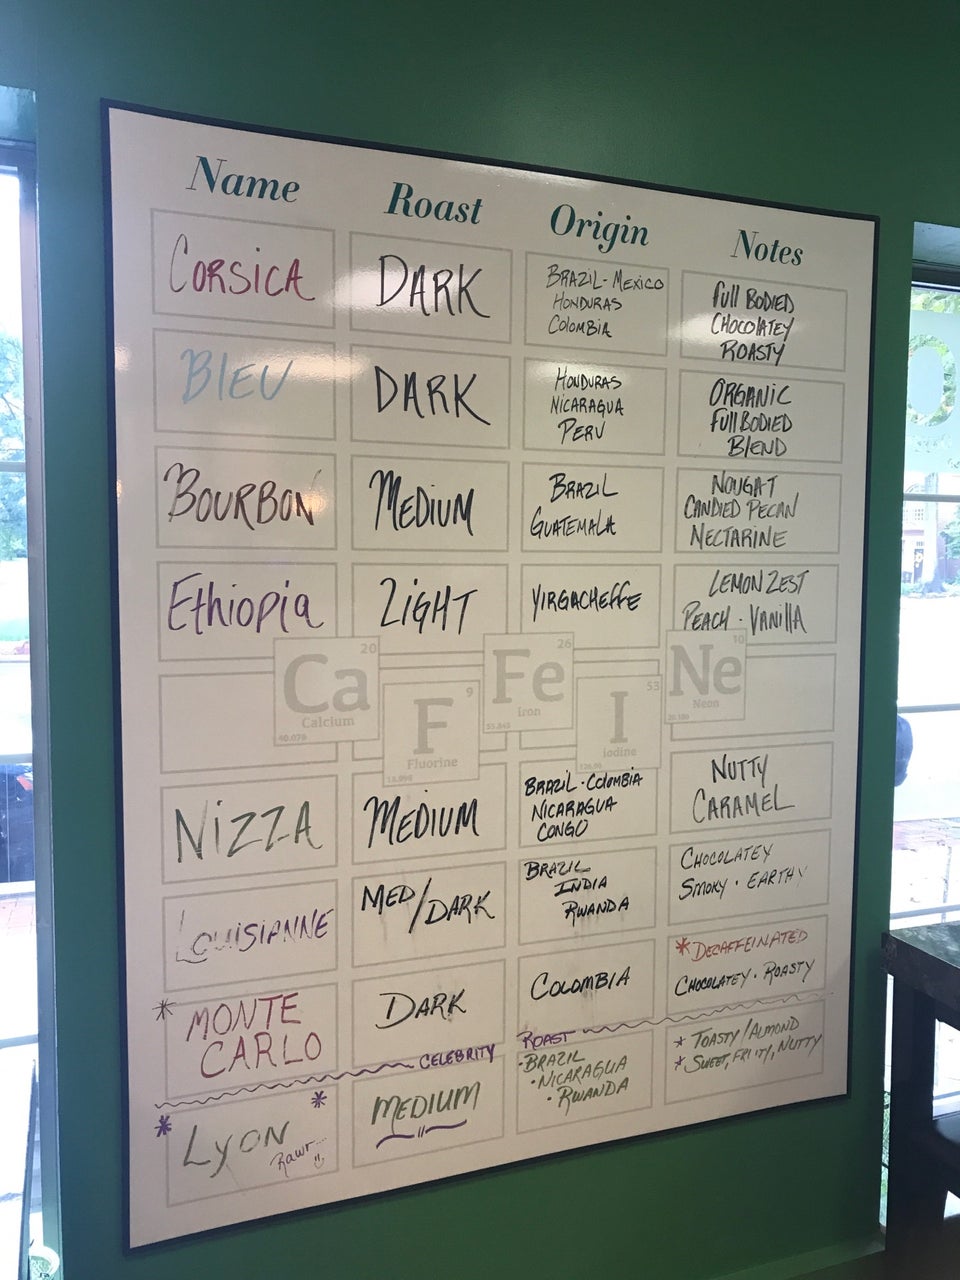 Name Roast Origin Notes
CORSICA
DARK
BRAZIL - MEXICO
HONDURAS
COLOMBIA
FULL BODIED
CHOCOLATEY
ROASTY
BLEU
DARK
HONDURAS
NICARAGUA
PERU
ORGANIC
FULL BODIED
BLEND
BOURBON
MEDIUM
BRAZIL
GUATEMALA
NOUGAT
CANDIED PECAN
NECTARINE
Ethiopia
LIGHT
YIRGACHEFFE
LEMON ZEST
PEACH · VANILLA
20
Ca
Calcium
40.078
9
F
Fluorine
18.998
26
Fe
Iron
55.845
53
I
Iodine
126.90
10
Ne
Neon
20.180
NIZZA
MEDIUM
BRAZIL · COLOMBIA
NICARAGUA
CONGO
NUTTY
CARAMEL
LOUISIANNE
MED/DARK
BRAZIL
INDIA
RWANDA
CHOCOLATEY
SMOKY · EARTHY
* MONTE
CARLO
DARK
COLOMBIA
* DECAFFEINATED
CHOCOLATEY · ROASTY
CELEBRITY ROAST
* LYON *
Rawr...
MEDIUM
· BRAZIL
· NICARAGUA
· RWANDA
* TOASTY/ALMOND
* SWEET, FRUITY, NUTTY